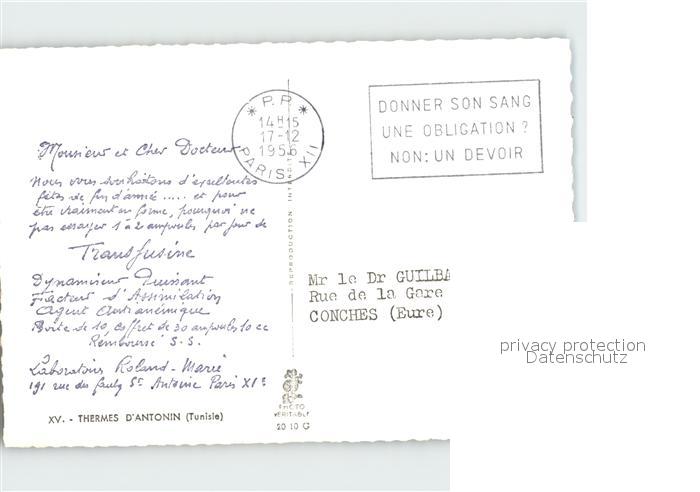 Monsieur et Cher Docteur
Nous vous souhaitons d'excellentes
fêtes de fin d'année ..... et pour
être vraiment en forme, pourquoi ne
pas essayer 1 à 2 ampoules par jour de
Transfusine
Dynamiseur Puissant
Facteur d'Assimilation
Agent Antianémique
Boite de 10, Coffret de 30 ampoules 10 cc
Remboursé S.S.
Laboratoires Roland-Marie
191 rue du faubg St Antoine Paris XIe
XV. - THERMES D'ANTONIN (Tunisie)
* P.P. *
14H15
17-12
1956
PARIS XII
REPRODUCTION INTERDITE
PHOTO
VERITABLE
20 10 G
DONNER SON SANG
UNE OBLIGATION ?
NON: UN DEVOIR
Mr le Dr GUILBA
Rue de la Gare
CONCHES (Eure)
privacy protection
Datenschutz